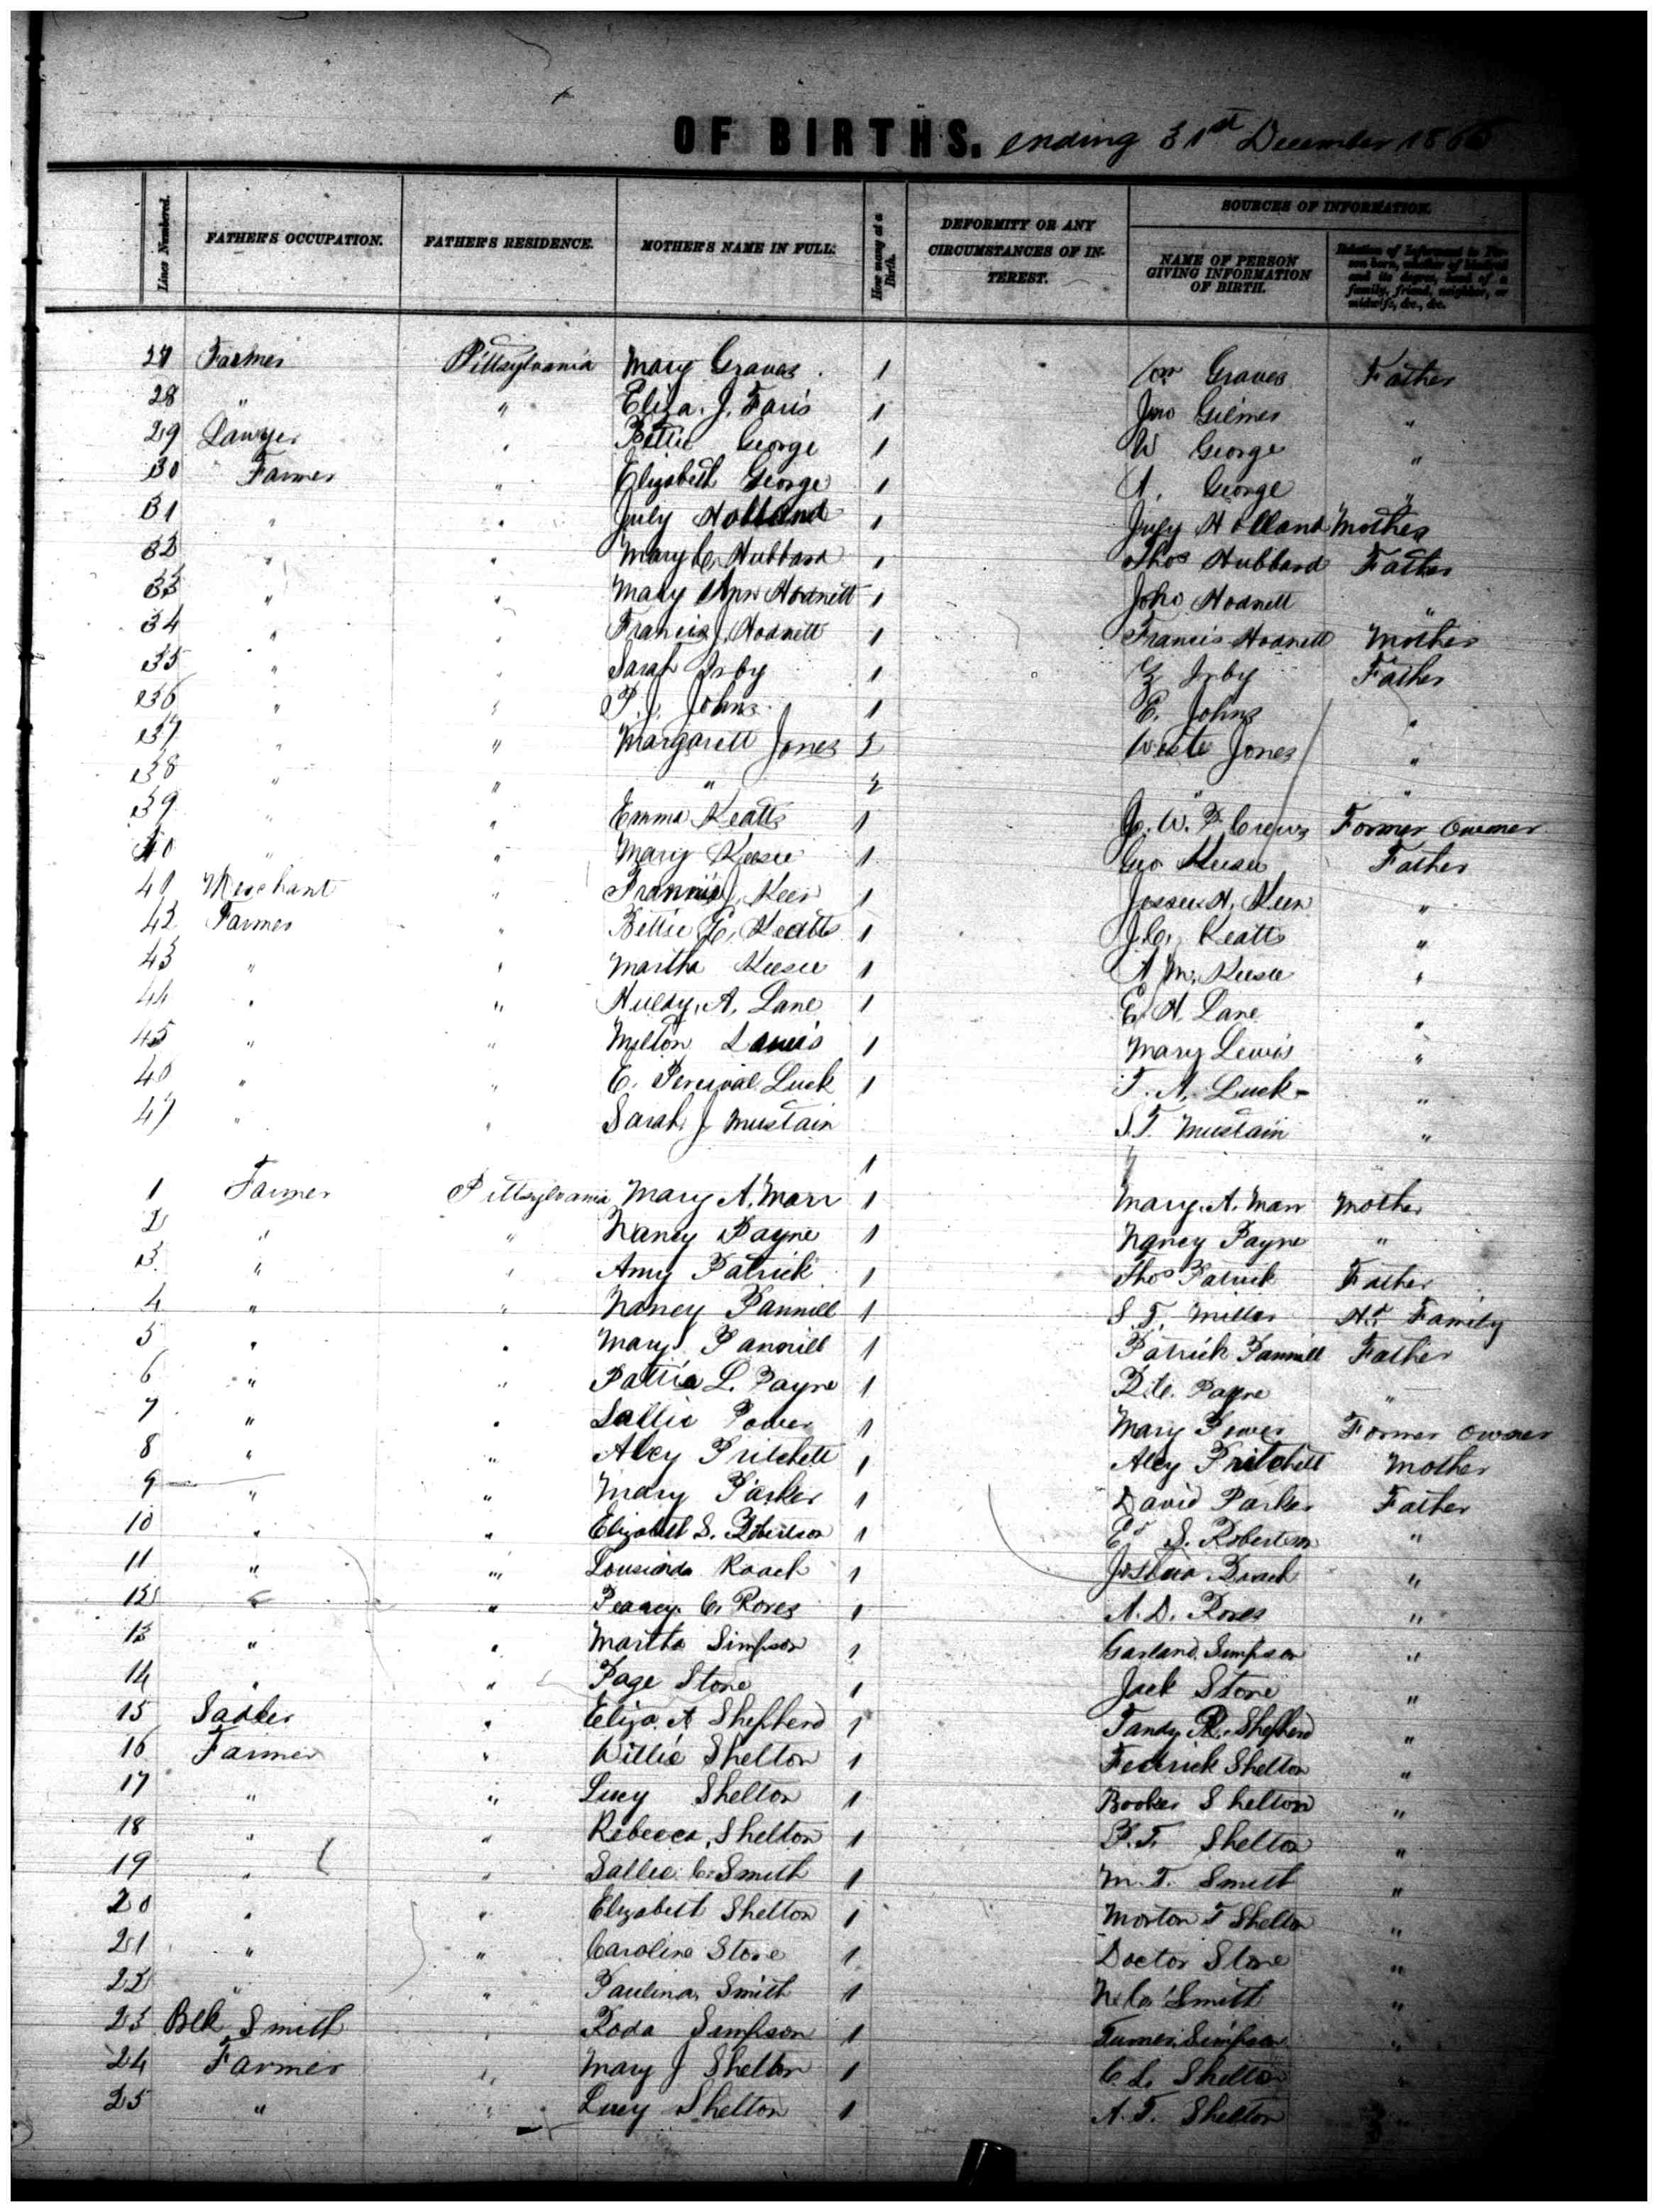 OF BIRTHS. ending 31st December 1865
SOURCES OF INFORMATION.
Lines Numbered. FATHER'S OCCUPATION. FATHER'S RESIDENCE. MOTHER'S NAME IN FULL. How many at a Birth. DEFORMITY OR ANY CIRCUMSTANCES OF INTEREST. NAME OF PERSON GIVING INFORMATION OF BIRTH. Relation of Informant to Person born, whether of kindred and its degree, head of a family, friend, neighbor, or midwife, &c., &c.
27 Farmer Pittsylvania Mary Graves 1 Graves Father
28 " " Eliza. J. Faris 1 Jno Gilmer "
29 Lawyer " Bettie George 1 W George "
30 Farmer " Elizabeth George 1 A. George "
31 " " July Holland 1 July Holland Mother
32 " " Mary C. Hubbard 1 Thos Hubbard Father
33 " " Mary Ann Hodnett 1 John Hodnett "
34 " " Francis J. Hodnett 1 Francis Hodnett Mother
35 " " Sarah Irby 1 Z Irby Father
36 " " P. J. Johns 1 E. Johns "
37 " " Margarett Jones 2 Jones "
38 " " " 2 " "
39 " " Emma Keatts 1 W. P. Crews Former Owner
40 " " Mary Keesee 1 Geo Keesee Father
41 Merchant " J. Keen 1 Jesse H. Keen "
42 Farmer " Bettie Keatts 1 J. C. Keatts "
43 " " Martha Keesee 1 A M. Keesee "
44 " " Huldy. A. Lane 1 E. H. Lane "
45 " " Milton Lewis 1 Mary Lewis "
46 " " E. Percival Luck 1 T. A. Luck "
47 " " Sarah J Mustain 1 S. T. Mustain "
1 Farmer Pittsylvania Mary A. Marr 1 Mary. A. Marr Mother
2 " " Nancy Payne 1 Nancy Payne "
3 " " Amy Patrick 1 Thos Patrick Father
4 " " Nancy Pannill 1 S. T. Miller Hd. Family
5 " " Mary Pannill 1 Patrick Pannill Father
6 " " Pattie L. Payne 1 R. C. Payne "
7 " " Sallie Power 1 Mary Power Former Owner
8 " " Alcy Pritchett 1 Alcy Pritchett Mother
9 " " Mary Parker 1 David Parker Father
10 " " Elizabeth S. Robertson 1 Ed S. Robertson "
11 " " Lousinda Roach 1 Joshua Roach "
12 " " C. Rores 1 A. D. Rores "
13 " " Martha Simpson 1 Garland Simpson "
14 " " Page Stone 1 Jack Stone "
15 Sadler " Eliza A Shepherd 1 Tandy R. Shepherd "
16 Farmer " Willie Shelton 1 Fedrick Shelton "
17 " " Lucy Shelton 1 Booker Shelton "
18 " " Rebecca Shelton 1 P. T. Shelton "
19 " " Sallie C. Smith 1 M. T. Smith "
20 " " Elizabeth Shelton 1 Morton T Shelton "
21 " " Caroline Stone 1 Doctor Stone "
22 " " Paulina Smith 1 N. C. Smith "
23 Blk Smith " Roda Simpson 1 Turner Simpson "
24 Farmer " Mary J Shelton 1 C. L. Shelton "
25 " " Lucy Shelton 1 A. T. Shelton "